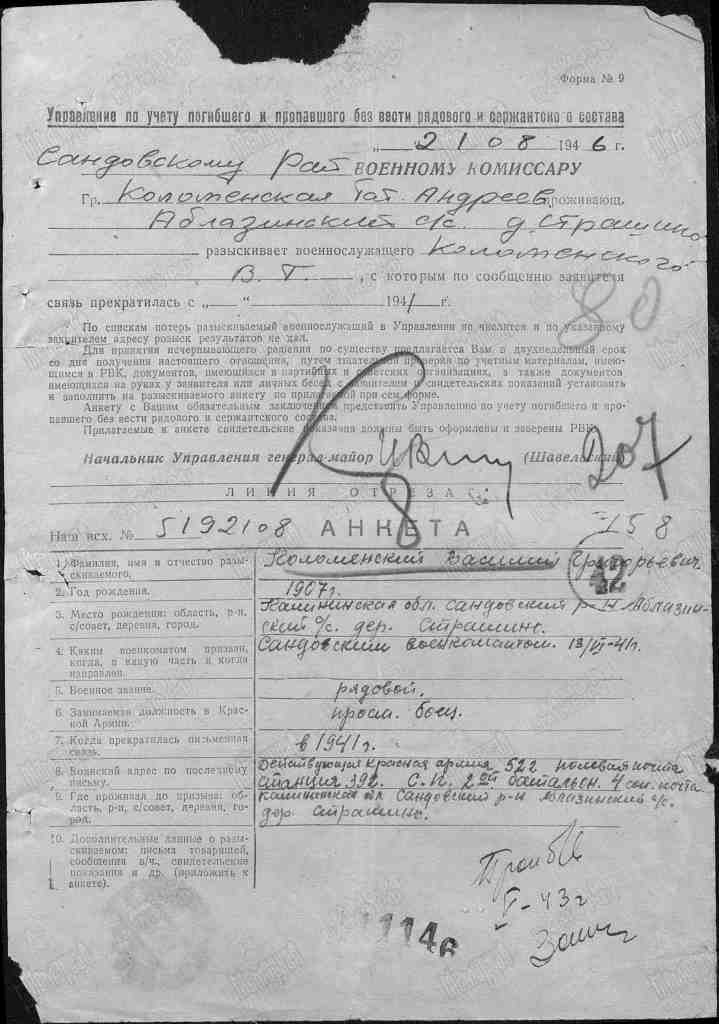 Форма № 9
Управление по учету погибшего и пропавшего без вести рядового и сержантского состава
„ 21 08 1946 г.
Сандовскому Рай ВОЕННОМУ КОМИССАРУ
Гр. Коломенская Тат. Андреев. проживающ.
Аблазинский с/с. д. Страшино
разыскивает военнослужащего Коломенского
В. Г. , с которым по сообщению заявителя
связь прекратилась с „ “ 1941 г.
80
По спискам потерь разыскиваемый военнослужащий в Управлении не числится и по указанному
заявителем адресу розыск результатов не дал.
Для принятия исчерпывающего решения по существу предлагается Вам в двухнедельный срок
со дня получения настоящего отношения, путем тщательной проверки по учетным материалам, имею-
щимся в РВК, документов, имеющихся в партийных и советских организациях, а также документов
имеющихся на руках у заявителя или личных бесед с заявителем и свидетельских показаний установить
и заполнить на разыскиваемого анкету по прилагаемой при сем форме.
Анкету с Вашим обязательным заключением представить Управлению по учету погибшего и про-
павшего без вести рядового и сержантского состава.
Прилагаемые к анкете свидетельские показания должны быть оформлены и заверены РВК.
Начальник Управления генерал-майор (Шавельский)
207
ЛИНИЯ ОТРЕЗА
Наш исх. № 5192108 АНКЕТА 158
1. Фамилия, имя и отчество разы-
скиваемого. Коломенский Василий Григорьевич.
12
2. Год рождения. 1907 г.
3. Место рождения: область, р-н, Калининская обл. Сандовский р-н Аблазин-
с/совет, деревня, город. ский с/с. дер. Страшино.
4. Каким военкоматом призван, Сандовским военкоматом. 13/VI-41 г.
когда, в какую часть и когда
направлен.
5. Военное звание. рядовой.
6. Занимаемая должность в Крас-
ной Армии. боец.
7. Когда прекратилась письменная
связь. в 1941 г.
8. Воинский адрес по последнему Действующая Красная армия 522 полевая почта
письму. станция 392. С.П. 2ой батальон. 4
9. Где проживал до призыва: об- Калининская обл. Сандовский р-н Аблазинский с/с.
ласть, р-н, с/совет, деревня, го- дер. Страшино.
род.
10. Дополнительные данные о разы-
скиваемом: письма товарищей,
сообщения в/ч., свидетельские
показания и др. (приложить к
анкете).
43 г
1146